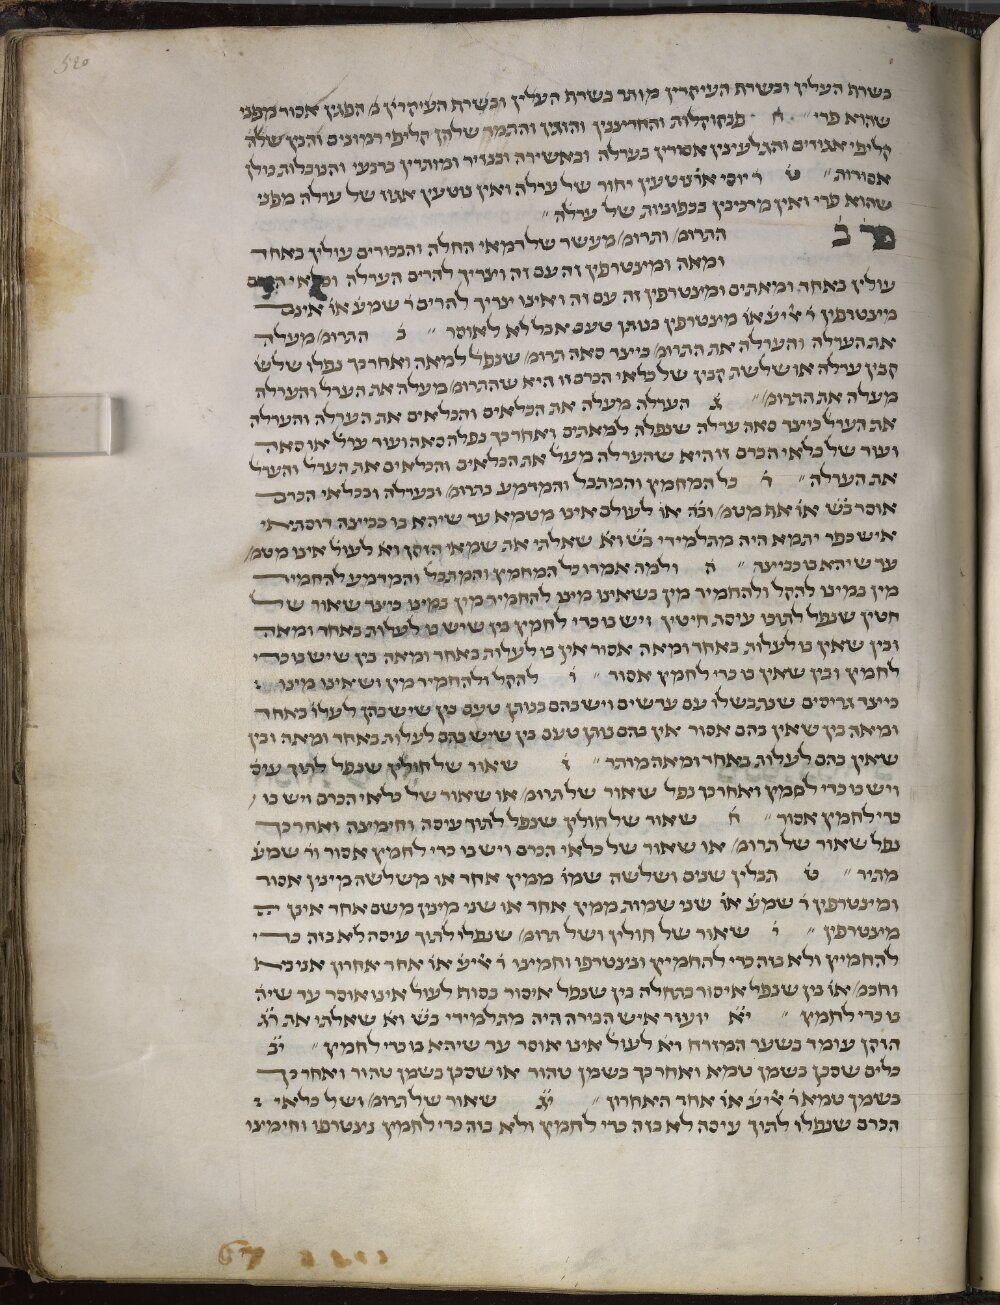 520
בשרת העלין ובשרת העיקרין מותר בשרת העלין ובשרת העיקרין מ הפגין אסור מפני
שהוא פרי ״ ח׳ הענקוקלות והחרצנין והזגין והתמד שלהן קליפי רמונים והנץ שלה
קליפי אגוזים והגלעינין אסורין בערלה ובאשירה ובנזיר ומותרין ברבעי והנובלות כולן
אסורות ״ ט׳ ר׳ יוסי או׳ נוטעין יחור של ערלה ואין נוטעין אגוז של ערלה מפני
שהוא פרי ואין מרכיבין בכפוניות של ערלה ״
פר׳ ב׳ התרומ׳ ותרומ׳ מעשר של דמאי החלה והבכורים עולין באחד
ומאה ומיצטרפין זה עם זה וצריך להרים הערלה וכלאי הכרם
עולין באחד ומאתים ומיצטרפין זה עם זה ואינו צריך להרים ר׳ שמע׳ או׳ אינם
מיצטרפין ר׳ אליע׳ או׳ מיצטרפין בנותן טעם אבל לא לאוסר ״ ב׳ התרומ׳ מעלה
את הערלה והערלה את התרומ׳ כיצד סאה תרומ׳ שנפל למאה ואחר כך נפלו שלש
קבין ערלה או שלשת קבין של כלאי הכרם זו היא שהתרומ׳ מעלה את הערל׳ והערלה
מעלה את התרומ׳ ״ ג׳ הערלה מעלה את הכלאים והכלאים את הערלה והערלה
את הערל׳ כיצד סאה ערלה שנפלה למאתים ואחר כך נפלה סאה ועוד ערל׳ או סאה
ועוד של כלאי הכרם זו היא שהערלה מעל׳ את הכלאים והכלאים את הערל׳ והערל׳
את הערלה ״ ד׳ כל המחמץ והמתבל והמדמע בתרומ׳ ובערלה ובכלאי הכרם
אוסר בש׳ או׳ אף מטמ׳ ובה׳ או׳ לעולם אינו מטמא עד שיהא בו כביצה דוסתאי
איש כפר יתמא היה מתלמידי בש׳ וא׳ שאלתי את שמאי הזקן וא׳ לעול׳ אינו מטמ׳
עד שיהא בו כביצה ״ ה׳ ולמה אמרו כל המחמץ והמתבל והמדמע להחמיר
מין במינו להקל ולהחמיר מין בשאינו מינו להחמיר מין במינו כיצד שאור של
חטין שנפל לתוכו עיסת חיטין ויש בו כדי לחמץ בין שיש בו לעלות באחד ומאה
ובין שאין בו לעלות באחד ומאה אסור אין בו לעלות באחד ומאה בין שיש בו כדי
לחמץ ובין שאין בו כדי לחמץ אסור ״ ו׳ להקל ולהחמיר מין ושאינו מינו
כיצד גריסים שנתבשלו עם ערשים ויש בהם בנותן טעם בין שיש בהן לעלו׳ באחד
ומאה בין שאין בהם אסור אין בהם נותן טעם בין שיש בהם לעלות באחד ומאה ובין
שאין בהם לעלות באחד ומאה מותר ״ ז׳ שאור של חולין שנפל לתוך עיס׳
ויש בו כדי לחמיץ ואחר כך נפל שאור של תרומ׳ או שאור של כלאי הכרם ויש בו
כדי לחמץ אסור ״ ח׳ שאור של חולין שנפל לתוך עיסה וחימיצה ואחר כך
נפל שאור של תרומ׳ או שאור של כלאי הכרם ויש בו כדי לחמץ אסור ור׳ שמע׳
מתיר ״ ט׳ תבלין שנים ושלשה שמו׳ ממין אחד או משלשה מינין אסור
ומיצטרפין ר׳ שמע׳ או׳ שני שמות ממין אחד או שני מינין משם אחד אינן
מיצטרפין ״ י׳ שאור של חולין ושל תרומ׳ שנפלו לתוך עיסה לא בזה כדי
להחמיץ ולא בזה כדי להחמיץ וניצטרפו וחמיצו ר׳ אליע׳ או׳ אחר אחרון אני בא
וחכמ׳ או׳ בין שנפל איסור בתחלה בין שנפל איסור בסוף לעול׳ אינו אוסר עד שיה׳
בו כדי לחמץ ״ יא׳ יועזר איש הבירה היה מתלמידי בש׳ וא׳ שאלתי את רג׳
הזקן עומד בשער המזרח וא׳ לעול׳ אינו אוסר עד שיהא בו כדי לחמץ ״ יב׳
כלים שסכן בשמן טמא ואחר כך בשמן טהור או שסכן בשמן טהור ואחר כך
בשמן טמא ר׳ אליע׳ או׳ אחר האחרון ״ יג׳ שאור של תרומ׳ ושל כלאי
הכרם שנפלו לתוך עיסה לא בזה כדי לחמץ ולא בזה כדי לחמץ ניצטרפו וחימיצו